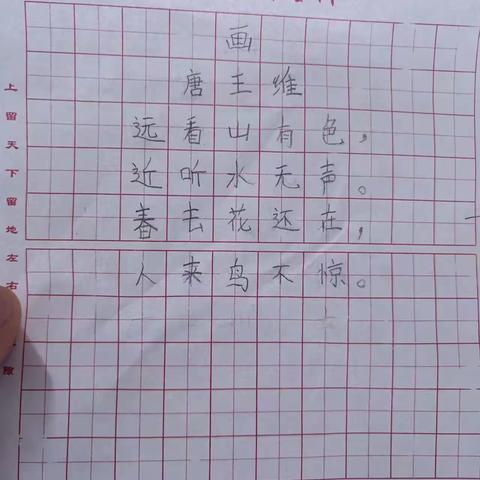 画
唐王维
远看山有色，
近听水无声。
春去花还在，
人来鸟不惊。
上留天下留地左右
隙